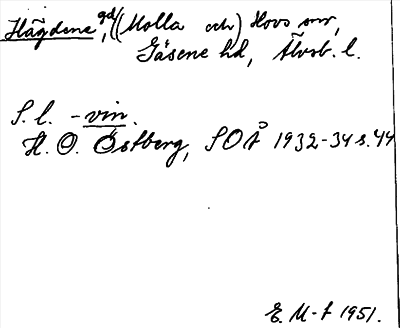 Hägdene, gd, (Molla och) Hovs snr,
Gäsene hd, Älvsb. l.
S. l. -vin.
H. O. Östberg, SOÅ 1932-34 s. 44
E. M-f 1951.